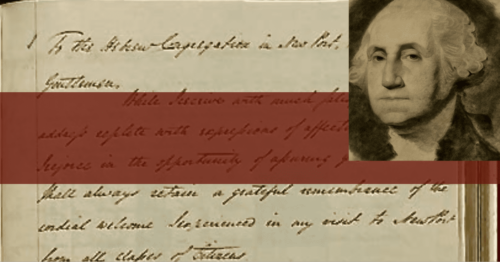 To the Hebrew Congregation in New Port.
Gentlemen,
While I receive with much
address replete with expressions of affect
Rejoice in the opportunity of assuring
shall always retain a grateful remembrance of the
cordial welcome I experienced in my visit to New Port
from all classes of Citizens.